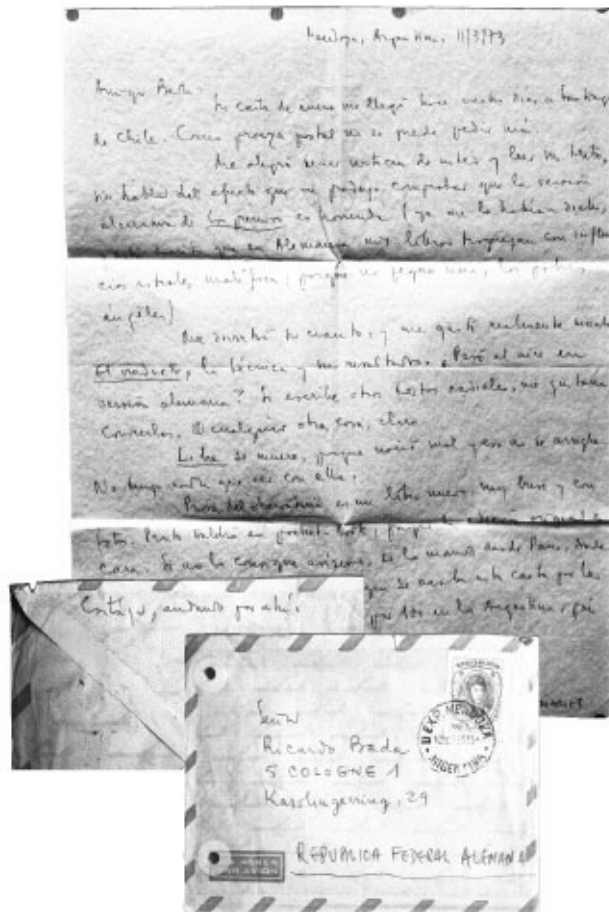 Mendoza, Argentina, 11/3/73
Amigo Bada:
Su carta de enero me llegó hace cuatro días a Santiago
de Chile. Como proeza postal no se puede pedir más.
Me alegró tener noticias de usted y leer su texto,
sin hablar del efecto que me produjo comprobar que la versión
alemana de Los premios es horrenda (ya me lo habían dicho,
que en Alemania mis libros tropiezan con influen
cias astrales maléficas, porque no pegan una, los pobres
ángeles)
Me divirtió su cuento, y me gustó realmente mucho
El viaducto, la técnica y sus resultados. ¿Pasó al aire en
versión alemana? Si escribe otros textos radiales, me gustaría
conocerlos. O cualquier otra cosa, claro.
Libre se muere, porque nació mal y eso no se arregla.
No tengo nada que ver con ella.
Prosa del observatorio es un libro nuevo, muy breve y con
fotos. Pronto saldrá en pocket-book, porque la edición original es
cara. Si no lo consigue avíseme, se lo mando desde París, donde
esta carta por las
en la Argentina, qué
Cortázar, andando por ahí.
Señor
Ricardo Bada
5 COLOGNE 1
29
REPUBLICA FEDERAL ALEMANA
MENDOZA
ARGENTINA